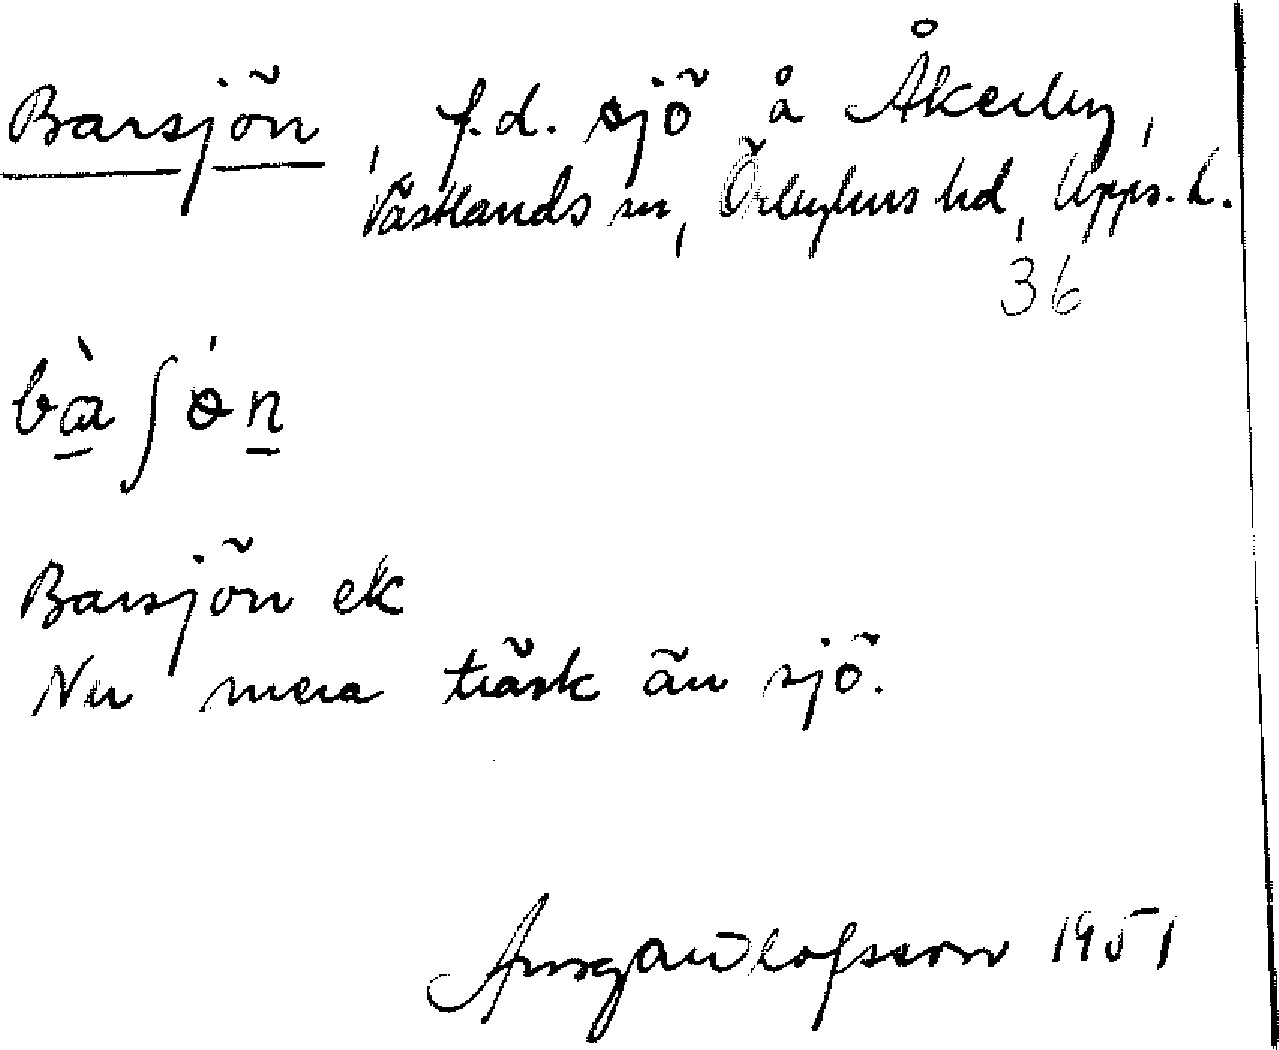 Barsjön, f.d. sjö å Åkerby,
Västlands sn, Örbyhus hd, Upps. l.
36
bàʃón
Barsjön ek
Nu mera träsk än sjö.
Olofsson 1951